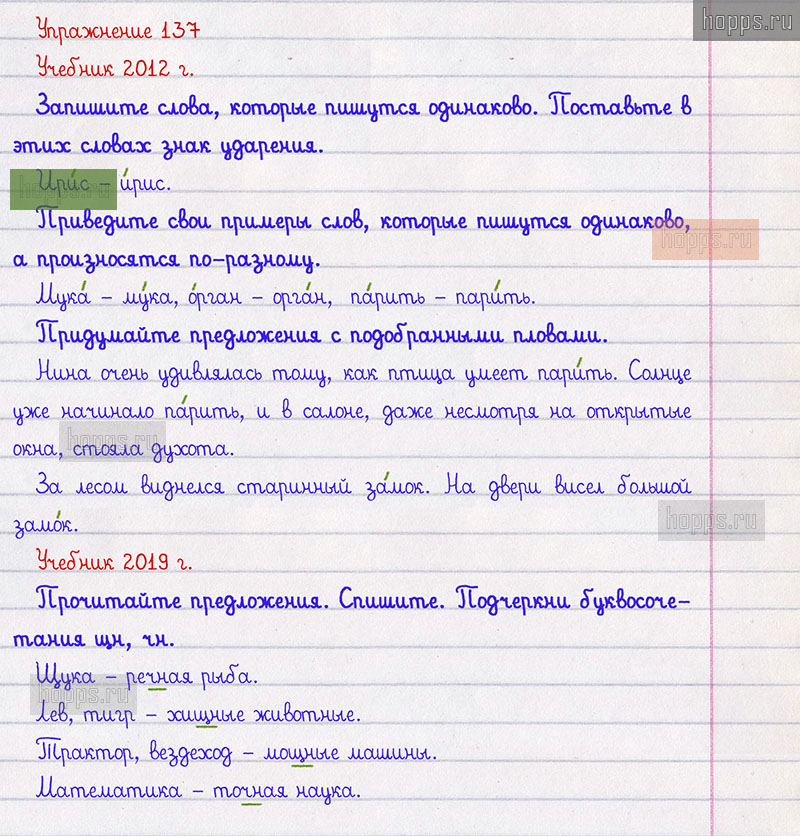 hopps.ru
Упражнение 137
Учебник 2012 г.
Запишите слова, которые пишутся одинаково. Поставьте в
этих словах знак ударения.
Ири́с – и́рис.
hopps.ru
Приведите свои примеры слов, которые пишутся одинаково,
а произносятся по-разному.
hopps.ru
Мука́ – му́ка, о́рган – орга́н, па́рить – пари́ть.
Придумайте предложения с подобранными пловами.
Нина очень удивлялась тому, как птица умеет пари́ть. Солнце
уже начинало па́рить, и в салоне, даже несмотря на открытые
окна, стояла духота.
hopps.ru
За лесом виднелся старинный за́мок. На двери висел большой
замо́к.
hopps.ru
Учебник 2019 г.
Прочитайте предложения. Спишите. Подчеркни буквосоче-
тания щн, чн.
Щука – речная рыба.
hopps.ru
Лев, тигр – хищные животные.
Трактор, вездеход – мощные машины.
Математика – точная наука.